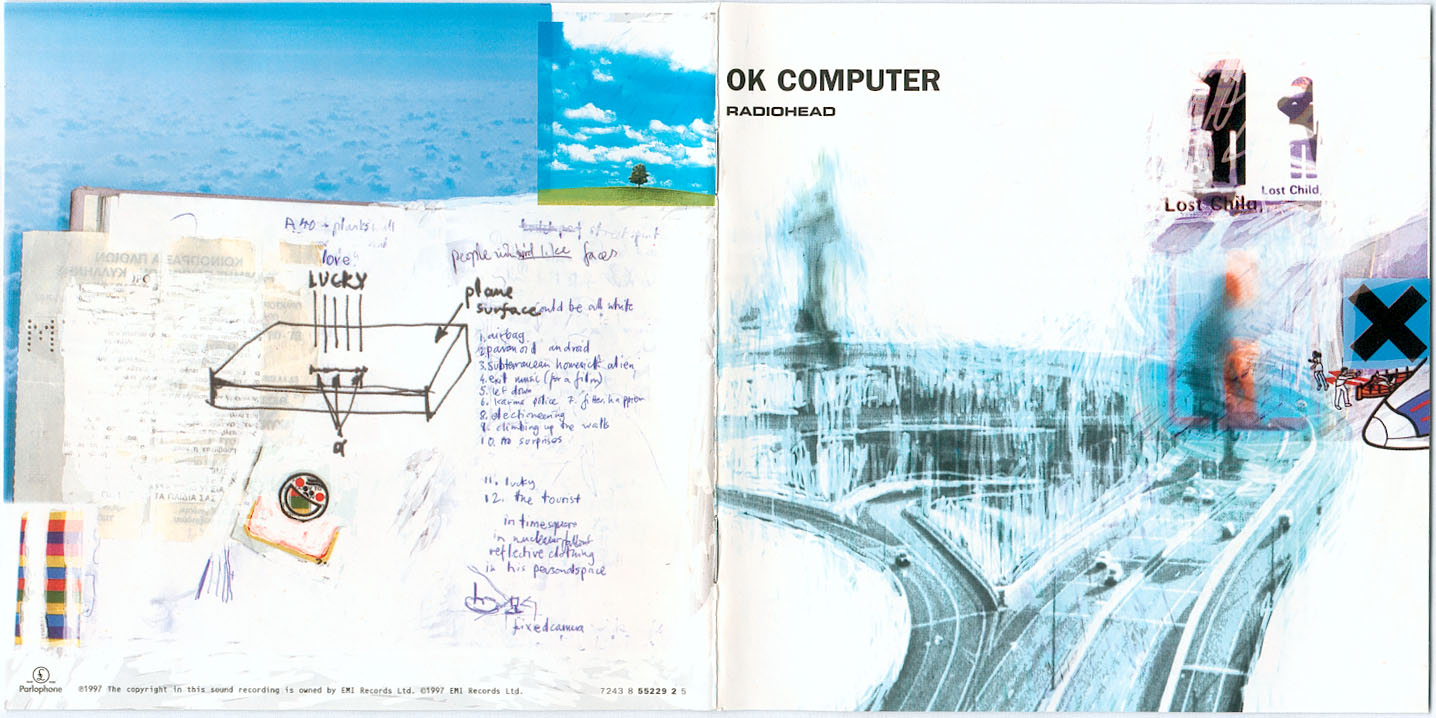 A40
love
LUCKY
people with bird like faces
plane
surface
could be all white
1. airbag
2 paranoid android
3. Subterranean homesick alien
4. exit music (for a film)
5. let down
6. karma police 7. fitter, happier
8. electioneering
9. climbing up the walls
10. no surprises
11. lucky
12. the tourist
in timesquare
in nuclear fallout
reflective clothing
in his personal space
fixed camera
Parlophone
℗1997 The copyright in this sound recording is owned by EMI Records Ltd. ©1997 EMI Records Ltd.
7243 8 55229 2 5
OK COMPUTER
RADIOHEAD
Lost Child,
Lost Child,